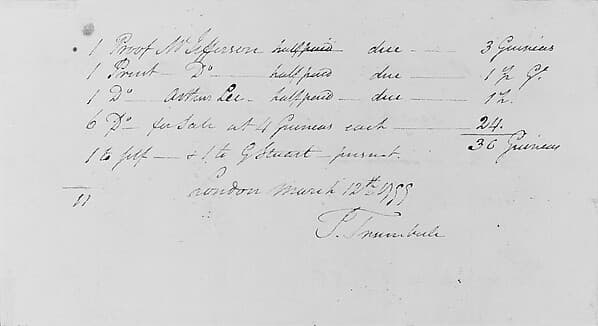 1 Proof Mr Jefferson half paid due — 3 Guineas
1 Print Do — half paid due — 1½ Gs.
1 Do Arthur Lee — half paid — due — 1½.
6 Do for Sale at 4 Guineas each — 24.
1 to self — & 1 to G Stuart — present. 30 Guineas
11 London March 12th 1799
J. Trumbull